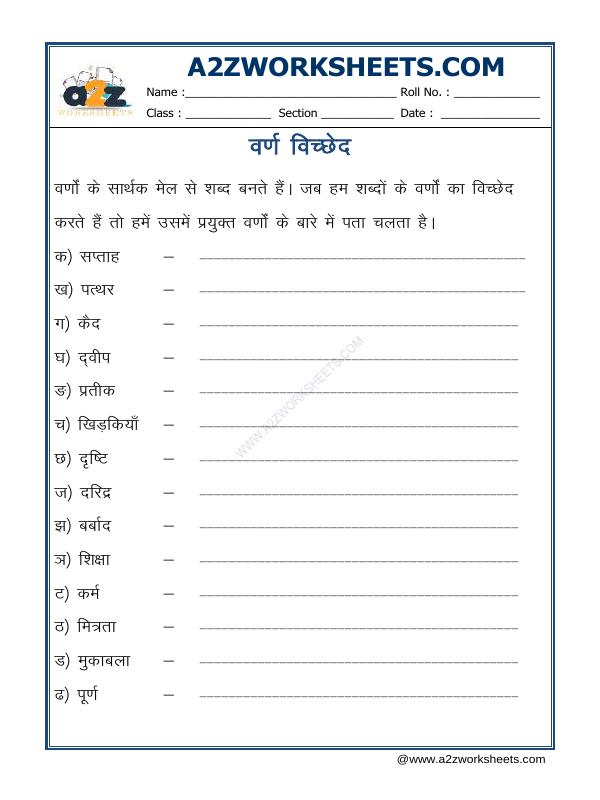 A2ZWORKSHEETS.COM
a2z
WORKSHEETS
Name :______________________________ Roll No. : ____________
Class : ____________ Section __________ Date : ______________
वर्ण विच्छेद
वर्णों के सार्थक मेल से शब्द बनते हैं। जब हम शब्दों के वर्णों का विच्छेद
करते हैं तो हमें उसमें प्रयुक्त वर्णों के बारे में पता चलता है।
क) सप्ताह – ______________________________
ख) पत्थर – ______________________________
ग) कैद – ______________________________
घ) द्वीप – ______________________________
ङ) प्रतीक – ______________________________
च) खिड़कियाँ – ______________________________
छ) दृष्टि – ______________________________
ज) दरिद्र – ______________________________
झ) बर्बाद – ______________________________
ञ) शिक्षा – ______________________________
ट) कर्म – ______________________________
ठ) मित्रता – ______________________________
ड) मुकाबला – ______________________________
ढ) पूर्ण – ______________________________
WWW.A2ZWORKSHEETS.COM
@www.a2zworksheets.com